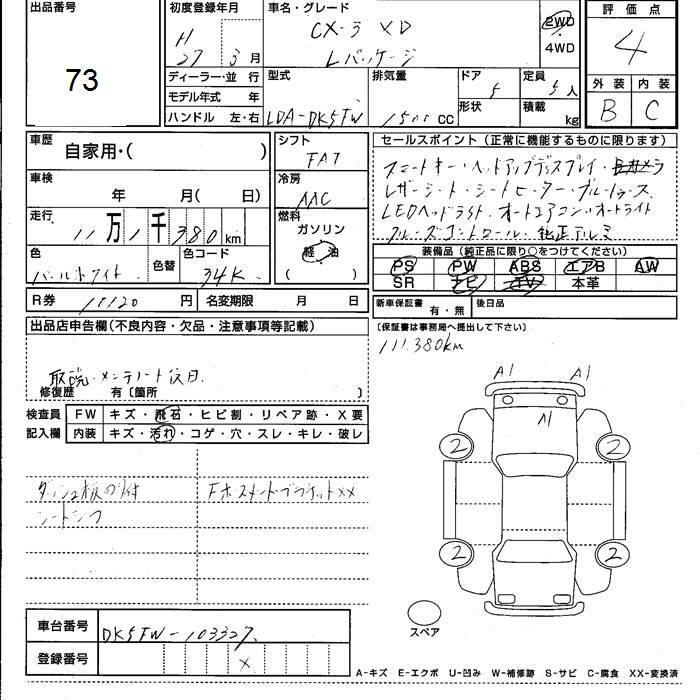 出品番号
73
初度登録年月
H 27 3 月
車名・グレード
CX-3 XD
Lパッケージ
2WD
・
4WD
評価点
4
外装 内装
B C
ディーラー・並 行
モデル年式 年
ハンドル 左・右
型式
LDA-DK5FW
排気量
1500 CC
ドア
5
形状
定員
5 人
積載
kg
車歴
自家用・( )
車検
年 月( 日)
走行
11 万 1 千 380 km
色
パールホワイト
色替
色コード
34K
シフト
FAT
冷房
AAC
燃料
ガソリン
軽 油
( )
セールスポイント(正常に機能するものに限ります)
スマートキー・ヘッドアップディスプレイ・
レザーシート・シートヒーター・ブルートゥース
LEDヘッドライト オートエアコン・オートライト
クルーズコントロール・純正アルミ
装備品(純正品に限り○をつけてください)
PS PW ABS エアB AW
SR ナビ TV 本革
R券 10120 円 名変期限 月 日
新車保証書 有・無 後日品
(保証書は事務局へ提出して下さい)
111.380km
出品店申告欄(不良内容・欠品・注意事項等記載)
取説・メンテノート後日.
修復歴 有〔箇所 〕
検査員 FW キズ・飛石・ヒビ割・リペア跡・X要
記入欄 内装 キズ・汚れ・コゲ・穴・スレ・キレ・破レ
ダッシュ板のり付
シートシワ
FホスメンドブラケットXX
A1 A1
A1
2 2
2 2
スペア
車台番号 DK5FW-103327.
登録番号 X
A-キズ E-エクボ U-凹み W-補修跡 S-サビ C-腐食 XX-変換済